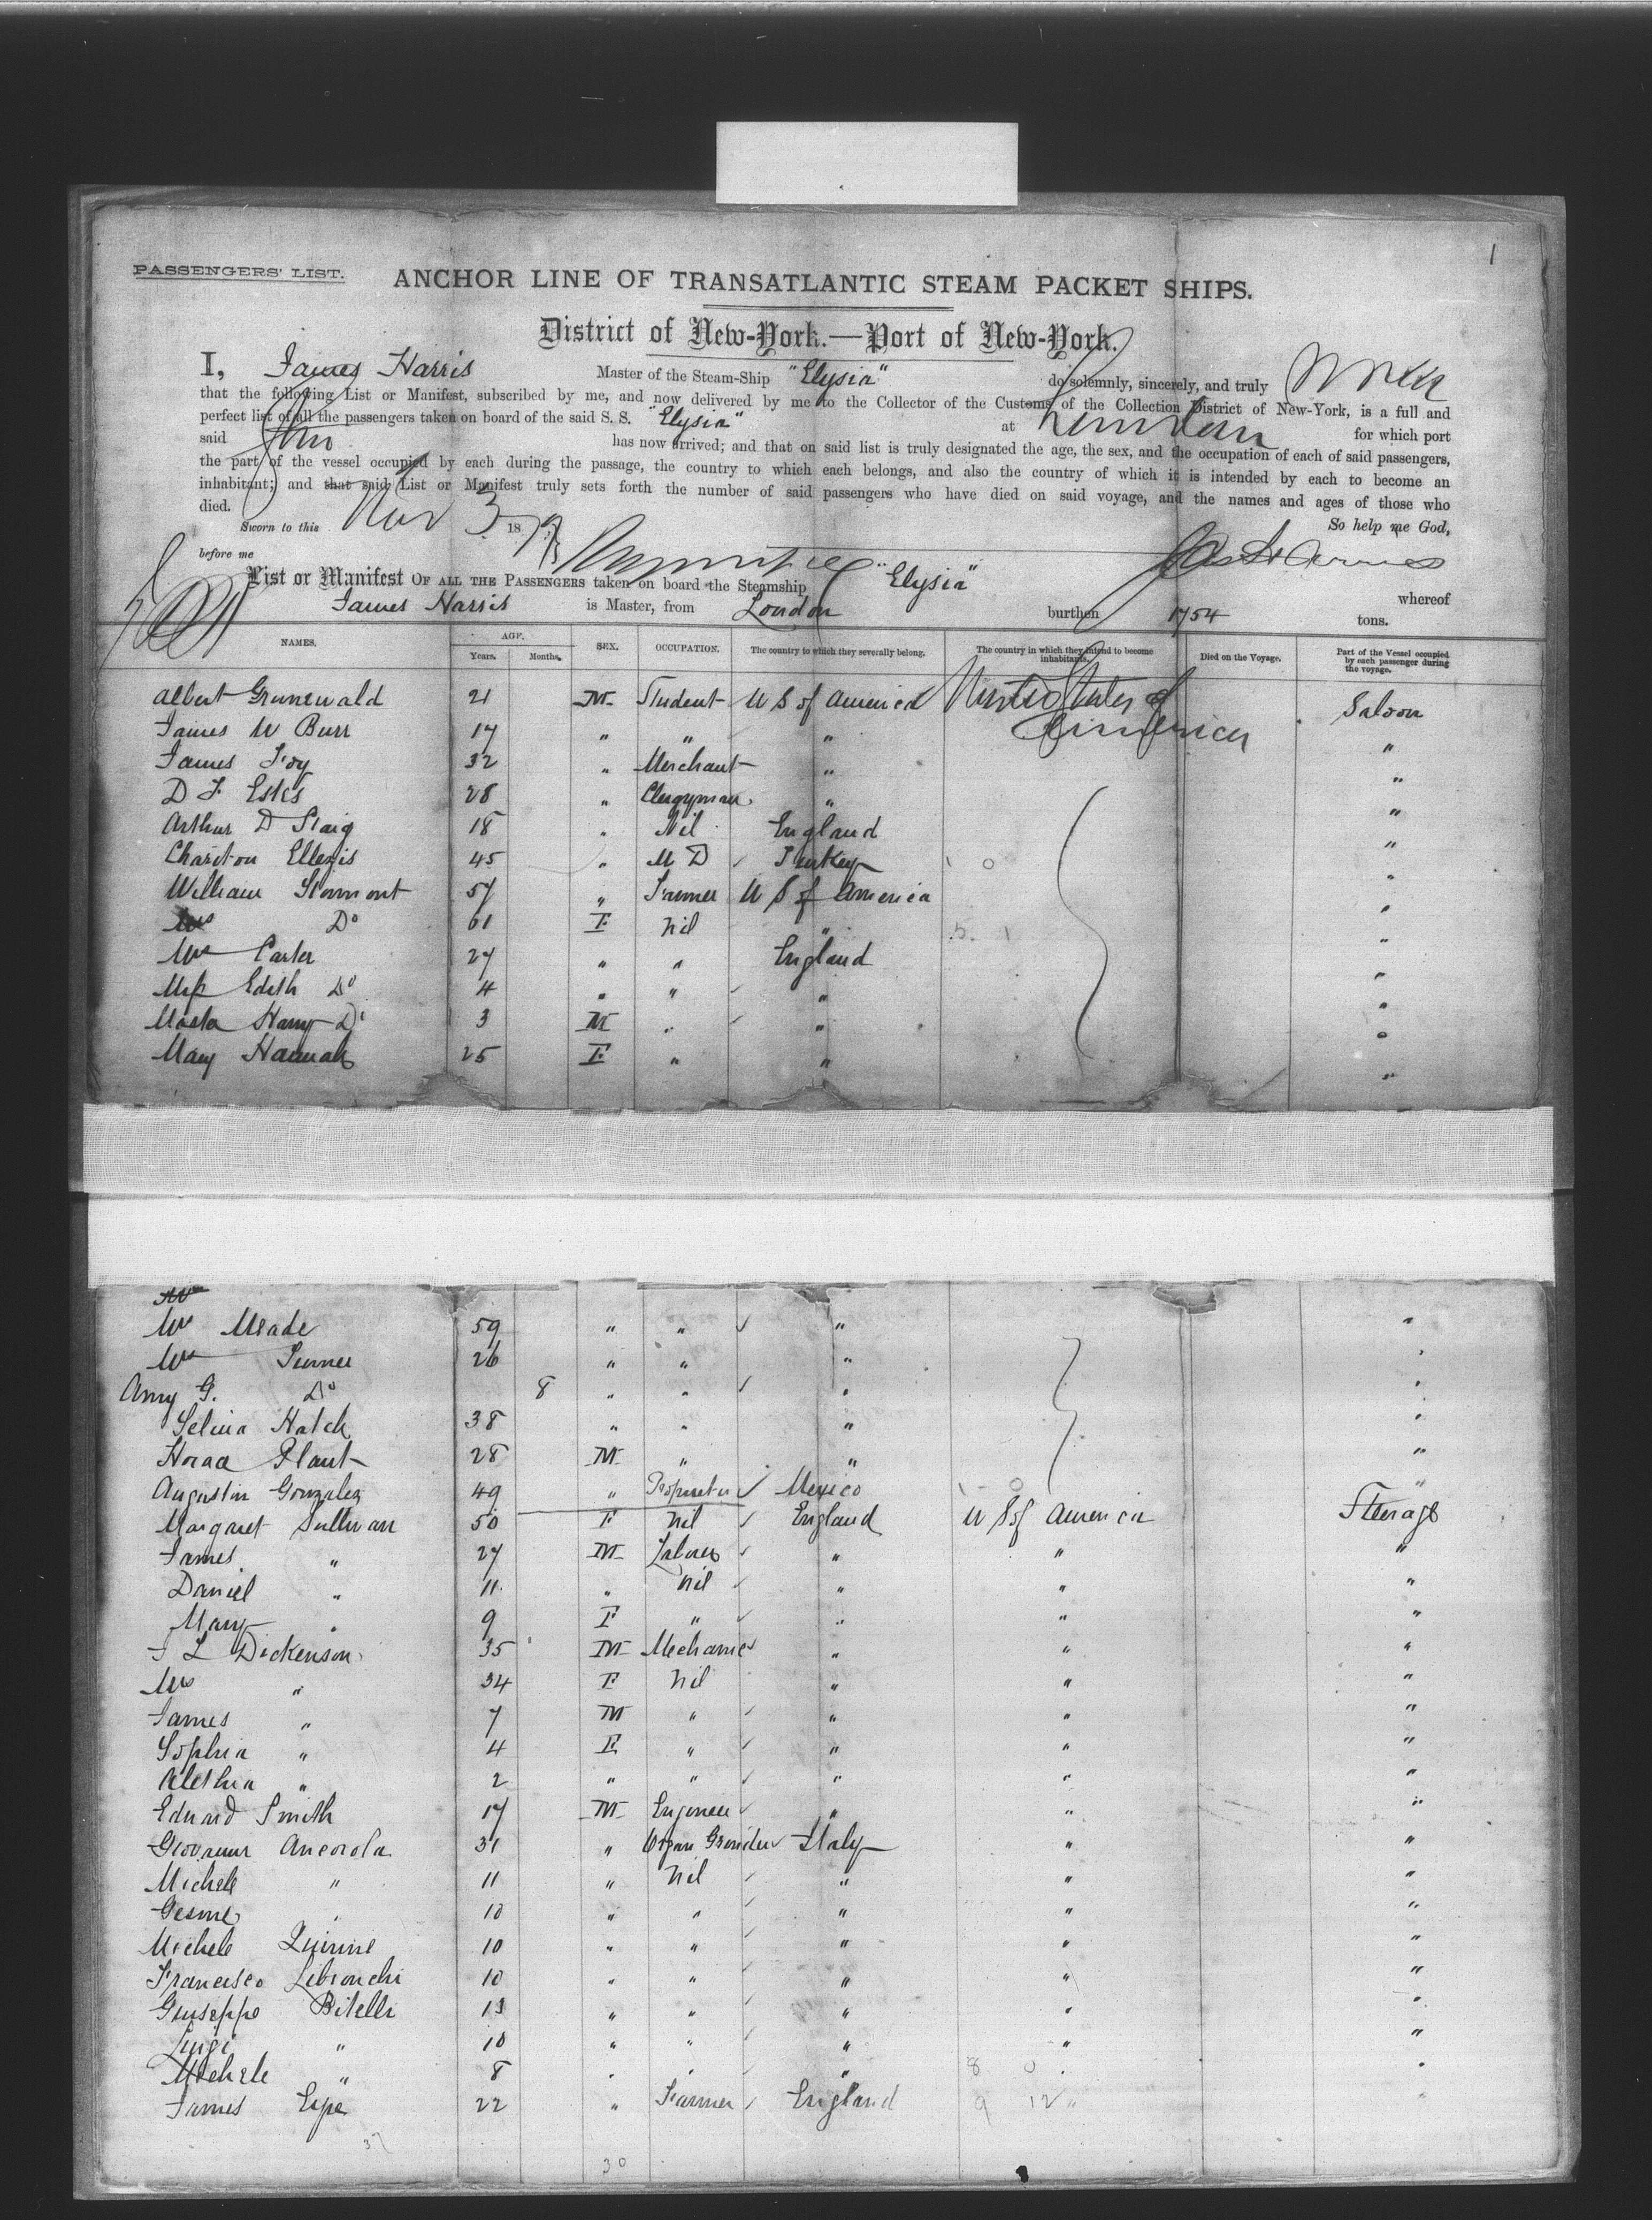 1
PASSENGERS' LIST.
ANCHOR LINE OF TRANSATLANTIC STEAM PACKET SHIPS.
District of New-York.—Port of New-York.
I, James Harris Master of the Steam-Ship "Elysia" do solemnly, sincerely, and truly
that the following List or Manifest, subscribed by me, and now delivered by me to the Collector of the Customs of the Collection District of New-York, is a full and
perfect list of all the passengers taken on board of the said S. S. "Elysia" at London for which port
said has now arrived; and that on said list is truly designated the age, the sex, and the occupation of each of said passengers,
the part of the vessel occupied by each during the passage, the country to which each belongs, and also the country of which it is intended by each to become an
inhabitant; and that said List or Manifest truly sets forth the number of said passengers who have died on said voyage, and the names and ages of those who
died. So help me God,
Sworn to this Nov 3 1879
before me
List or Manifest OF ALL THE PASSENGERS taken on board the Steamship "Elysia" whereof
James Harris is Master, from London burthen 1754 tons.
NAMES. AGE. Years. Months. SEX. OCCUPATION. The country to which they severally belong. The country in which they intend to become inhabitants. Died on the Voyage. Part of the Vessel occupied by each passenger during the voyage.
Albert Grunewald 21 M Student U S of America United States of America Saloon
James W Burr 17 " " " "
James Foy 32 " Merchant " "
D F Estes 28 " Clergyman " "
Arthur D Craig 18 " Nil England "
Chariton Ellezis 45 " M D Turkey 1 0 "
William Stormont 57 " Farmer U S of America "
Mrs Do 61 F Nil " 5. 1 "
Mrs Carter 27 " " England "
Miss Edith Do 4 " " " "
Master Harry Do 3 M " " "
Mary Hannah 25 F " " "
Mrs Meade 59 " " " "
Mrs Turner 26 " " " "
Amy G. Do 8 " " " "
Selina Hatch 38 " " " "
Horace Plant 28 M " " "
Augustin Gonzalez 49 " Proprietor Mexico 1 - 0 "
Margaret Sullivan 50 F Nil England U S of America Steerage
James " 27 M Labourer " " "
Daniel " 11 " Nil " " "
Mary " 9 F " " " "
J L Dickenson 35 M Mechanic " " "
Mrs " 34 F Nil " " "
James " 7 M " " " "
Sophia " 4 F " " " "
Alethia " 2 " " " " "
Edward Smith 17 M Engineer " " "
Giovanni Ancorola 31 " Organ Grinder Italy " "
Michele " 11 " Nil " " "
Gesme " 10 " " " " "
Michele 10 " " " " "
Francisco 10 " " " " "
Giuseppe Bitelli 13 " " " " "
Luigi " 10 " " " " "
Michele " 8 " " " 8 0 "
James 22 " Farmer England 9 12 " "
37
30